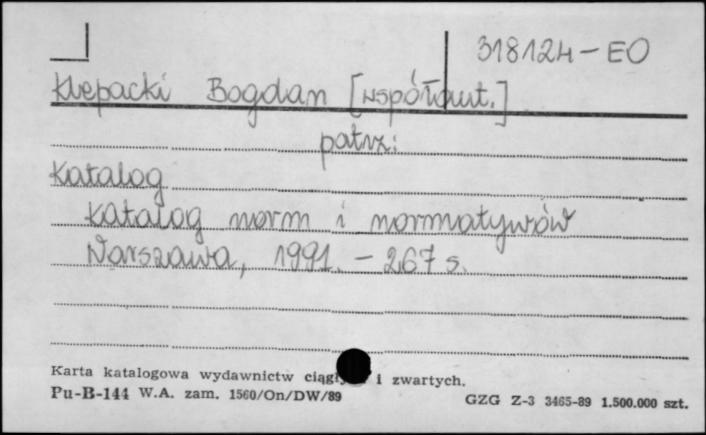 318124 - EO
Klepacki Bogdan [współaut.]
patrz:
Katalog
Katalog norm i normatywów
Warszawa, 1991. - 267 s.
Karta katalogowa wydawnictw ciągłych i zwartych.
Pu-B-144 W.A. zam. 1560/On/DW/89
GZG Z-3 3465-89 1.500.000 szt.